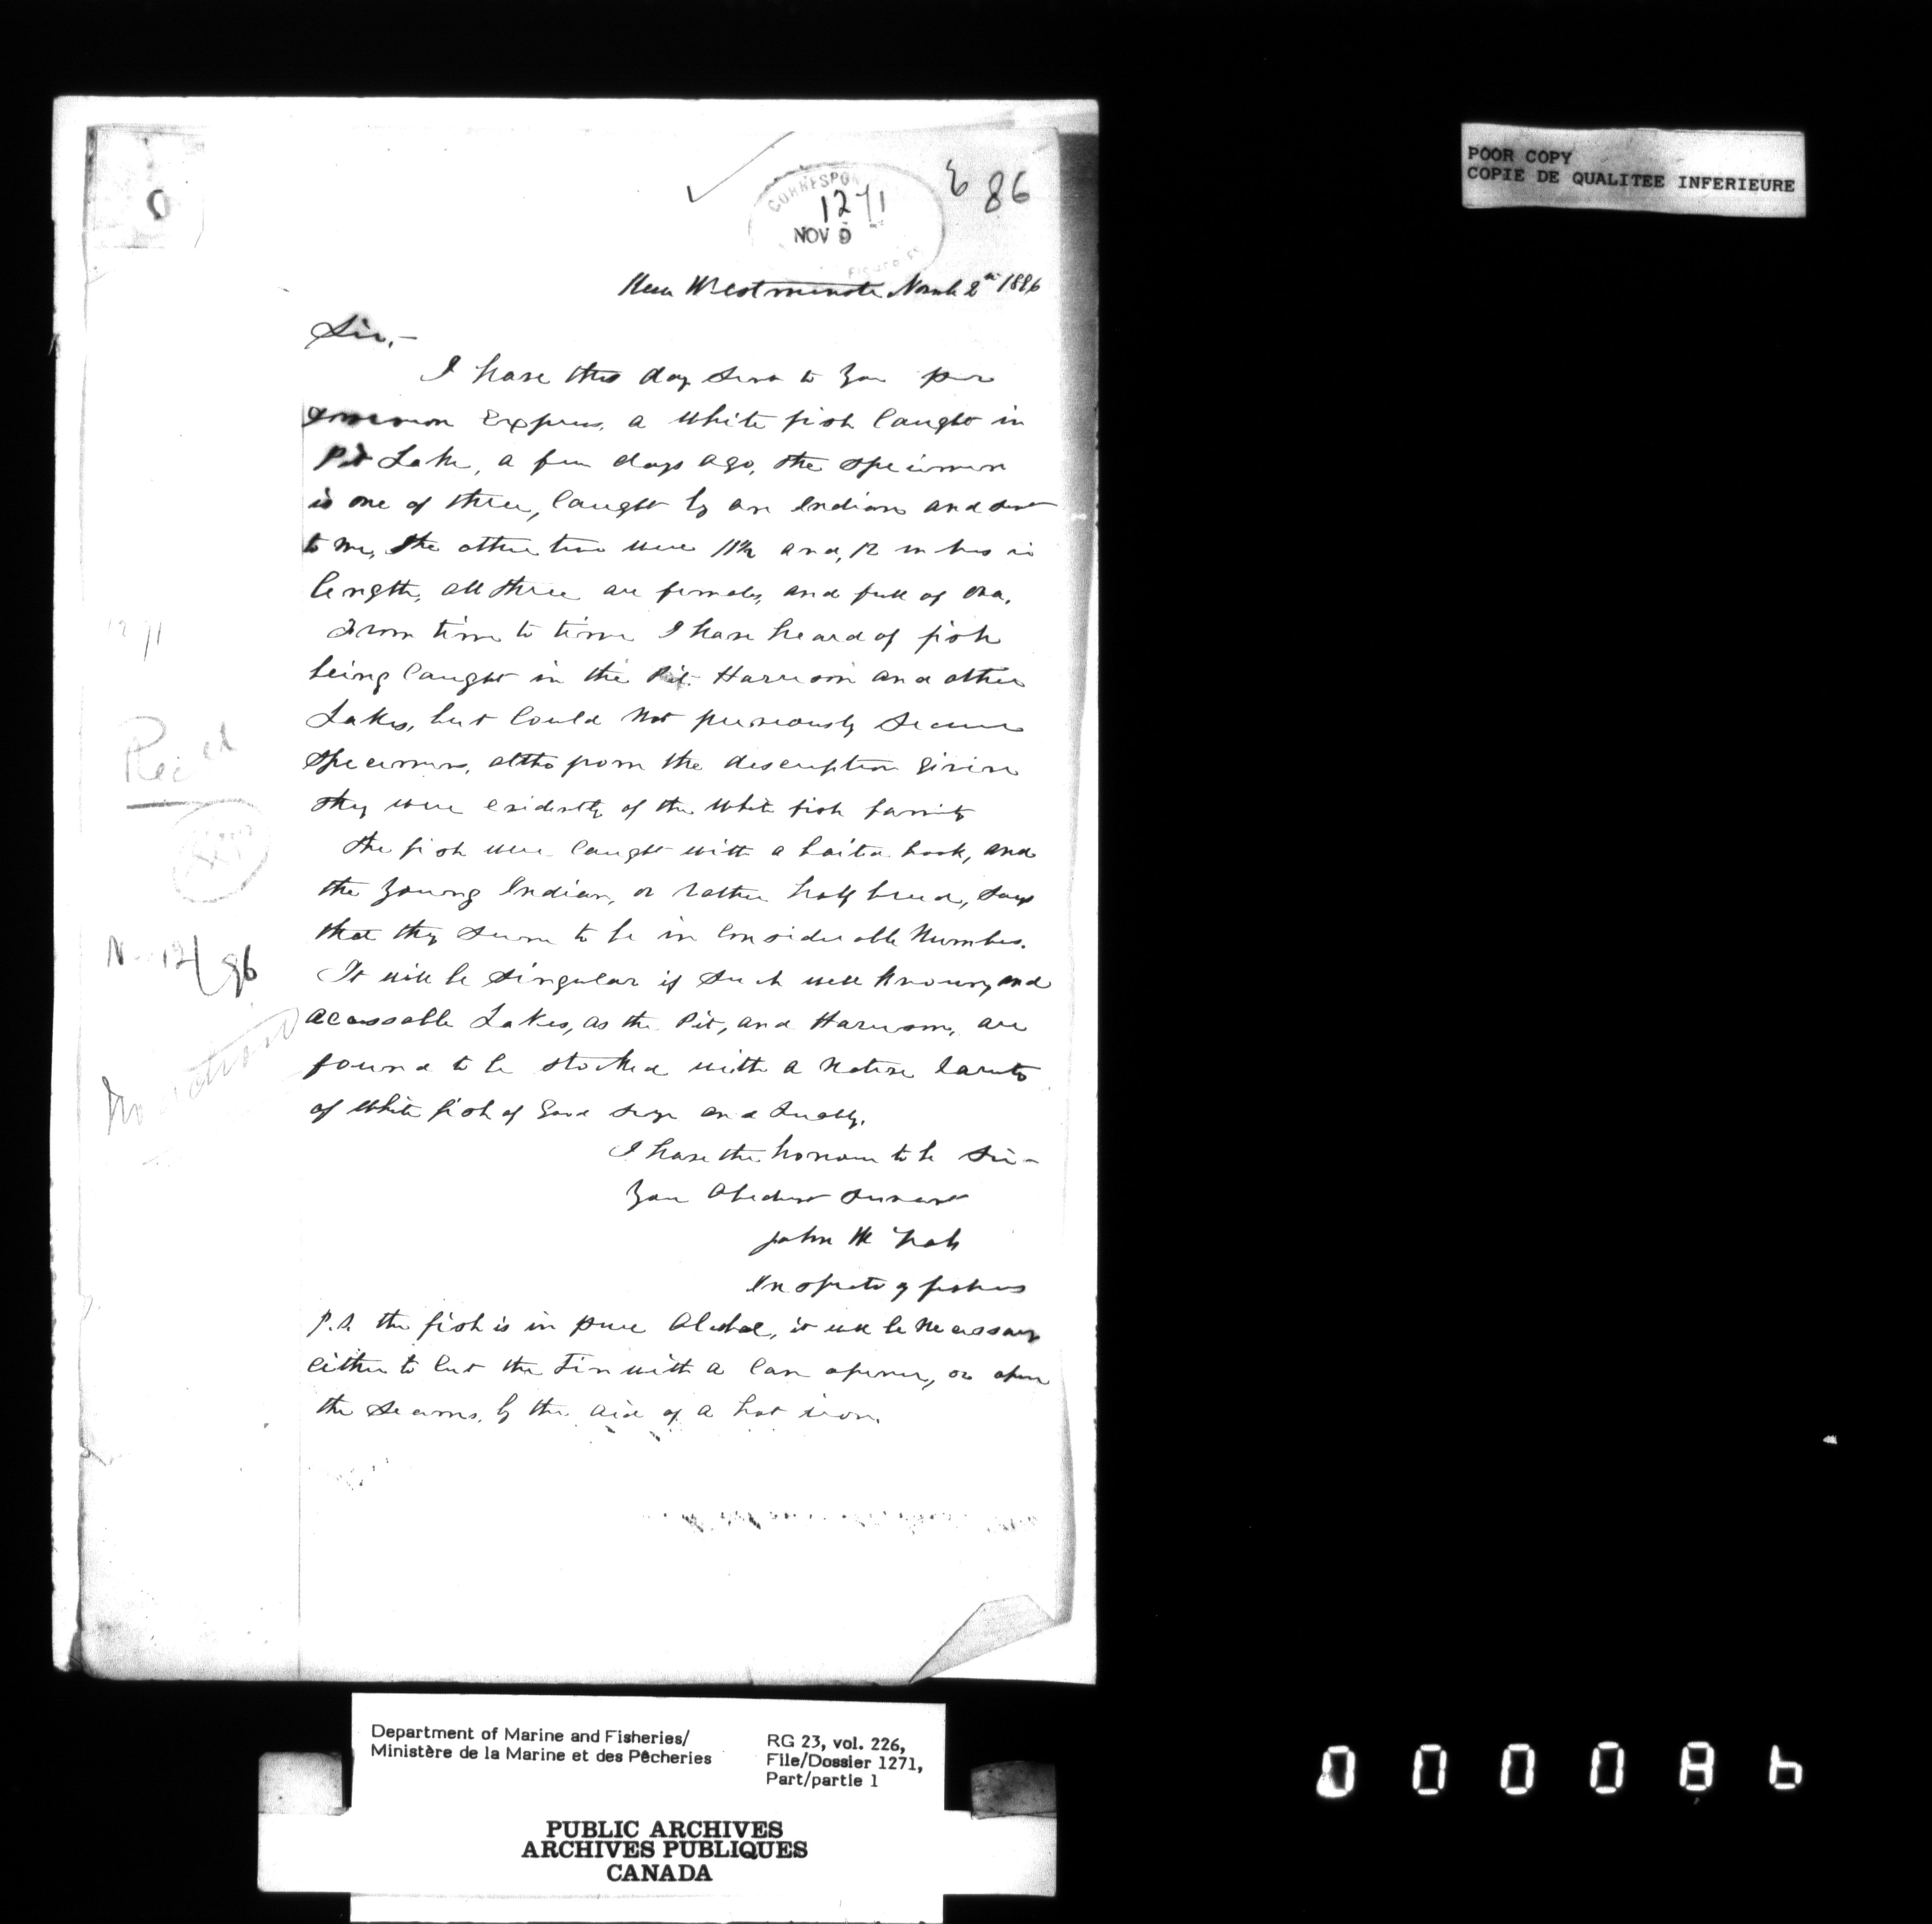 POOR COPY
COPIE DE QUALITEE INFERIEURE
0
CORRESPO
1271
NOV 9
86
New Westminster Novbr 2nd 1886
Sir,-
I have this day sent to you per
Express, a White fish Caught in
Pit Lake, a few days ago, the specimen
is one of three, Caught by an Indian and sent
to me, the other two were 11½ and, 12 inches in
length, all three are females, and full of ova.
From time to time I have heard of fish
being Caught in the Pit Harrison and other
Lakes, but Could not previously secure
specimens, altho from the description given
they were evidently of the White fish family
the fish were Caught with a baited hook, and
the young Indian, or rather half breed, says
that they seem to be in Considerable Numbers.
It will be singular if such well known, and
acessable Lakes, as the Pit, and Harrison, are
found to be stocked with a Native variety
of White fish of Good size and Quality.
I have the honour to be Sir-
Your Obedient Servant
Inspector of fisheries
P.S. the fish is in pure Alcohol, it will be Necessary
either to Cut the Tin with a Can opener, or open
the seams, by the aid of a hot iron.
1271
Rec'd
N 12/86
No action
Department of Marine and Fisheries/
Ministère de la Marine et des Pêcheries
RG 23, vol. 226,
File/Dossier 1271,
Part/partie 1
PUBLIC ARCHIVES
ARCHIVES PUBLIQUES
CANADA
000086